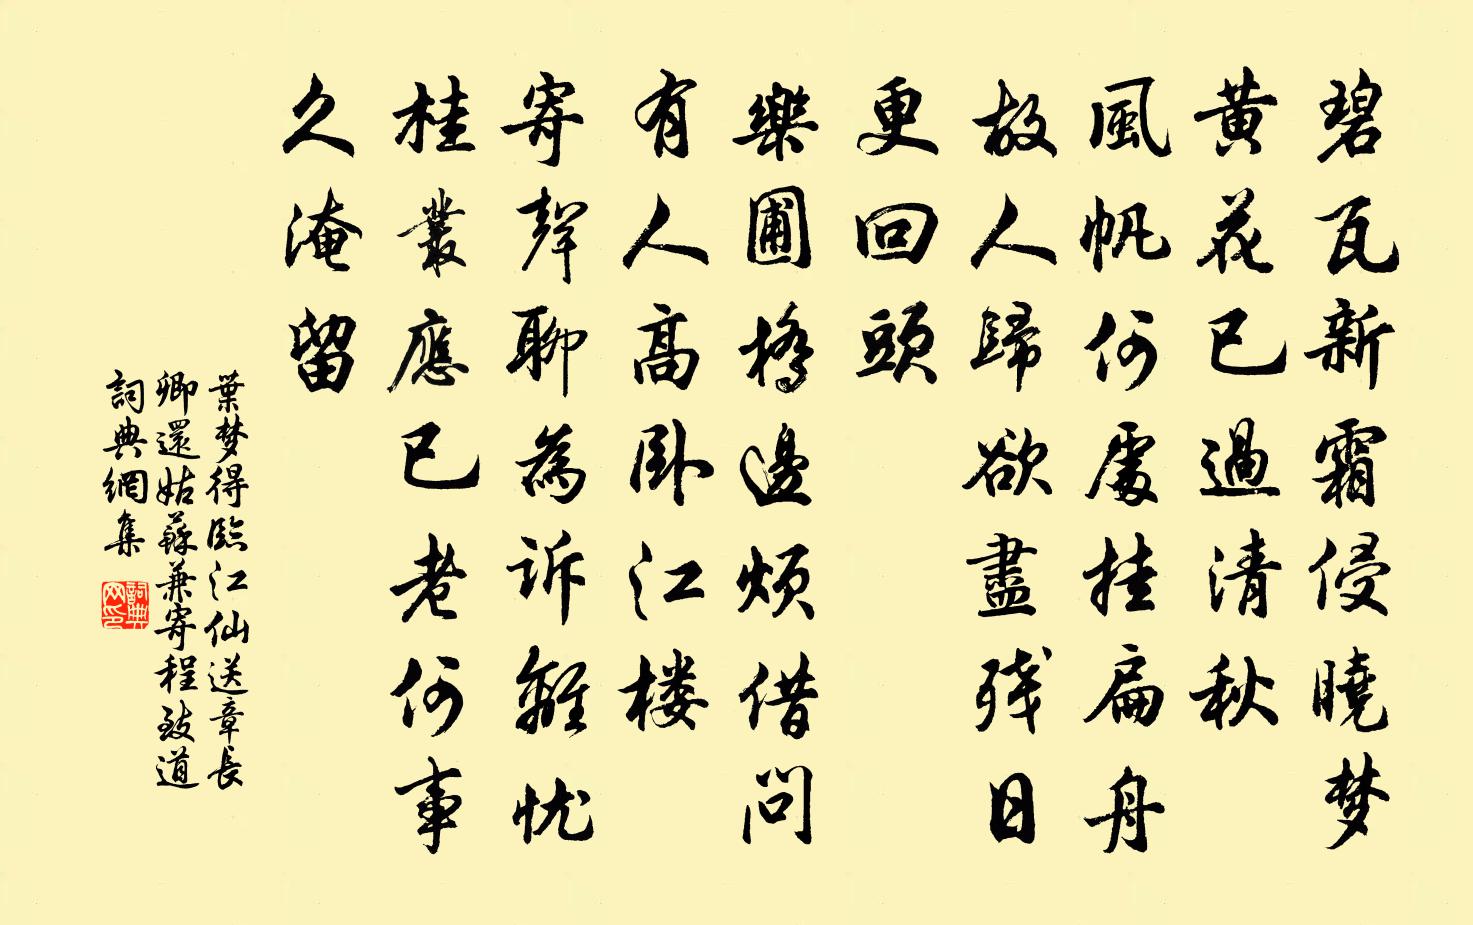 碧瓦新霜侵曉梦
黄花已過清秋
風帆何處挂扁舟
故人歸欲盡残日
更回頭
樂圃橋邊烦借问
有人高卧江楼
寄聲聊為诉離忧
桂叢應已老何事
久淹留
葉梦得臨江仙送章長
卿還姑蘇兼寄程致道
詞典網集
詞典
网印